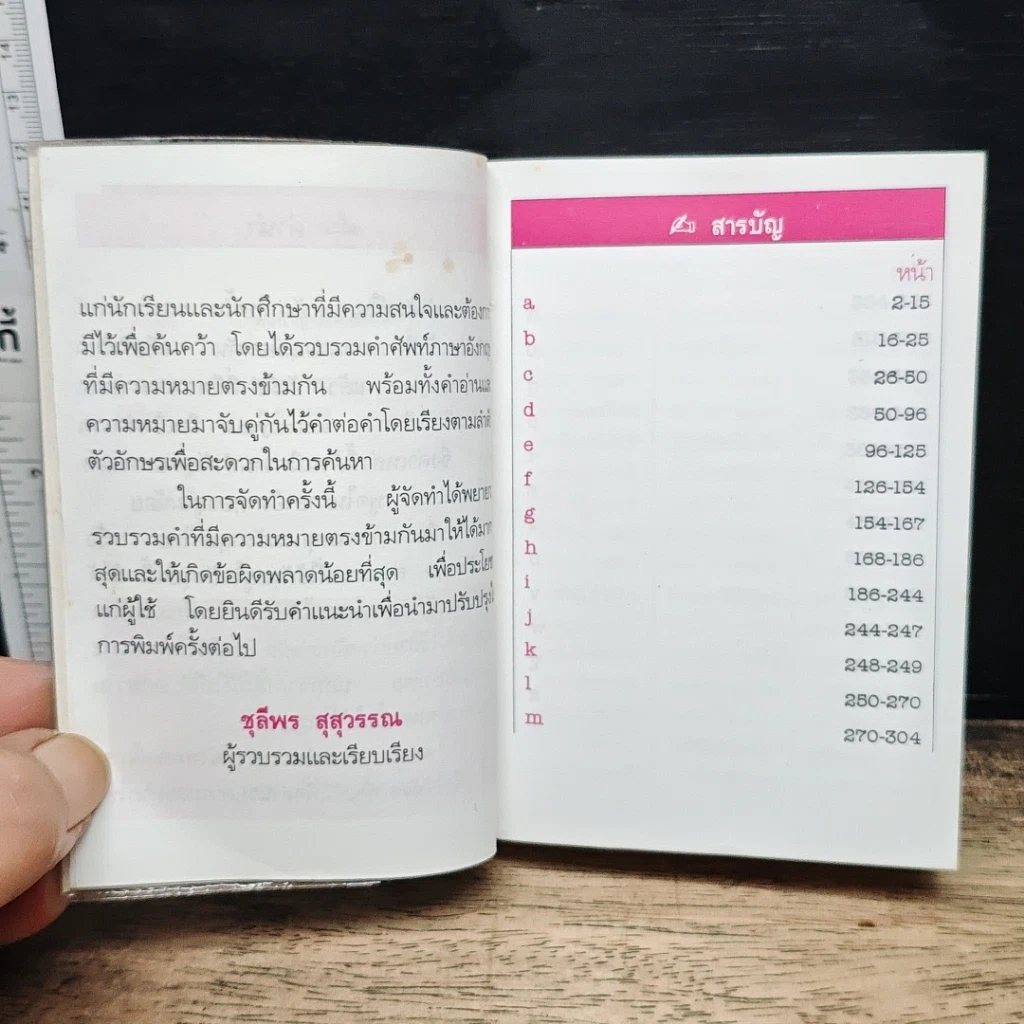 แก่นักเรียนและนักศึกษาที่มีความสนใจและต้องการ
มีไว้เพื่อค้นคว้า โดยได้รวบรวมคำศัพท์ภาษาอังกฤษ
ที่มีความหมายตรงข้ามกัน พร้อมทั้งคำอ่านและ
ความหมายมาจับคู่กันไว้คำต่อคำโดยเรียงตามลำดับ
ตัวอักษรเพื่อสะดวกในการค้นหา
ในการจัดทำครั้งนี้ ผู้จัดทำได้พยายาม
รวบรวมคำที่มีความหมายตรงข้ามกันมาให้ได้มาก
สุดและให้เกิดข้อผิดพลาดน้อยที่สุด เพื่อประโยชน์
แก่ผู้ใช้ โดยยินดีรับคำแนะนำเพื่อนำมาปรับปรุงใน
การพิมพ์ครั้งต่อไป
ชุลีพร สุสุวรรณ
ผู้รวบรวมและเรียบเรียง
สารบัญ
หน้า
a 2-15
b 16-25
c 26-50
d 50-96
e 96-125
f 126-154
g 154-167
h 168-186
i 186-244
j 244-247
k 248-249
l 250-270
m 270-304